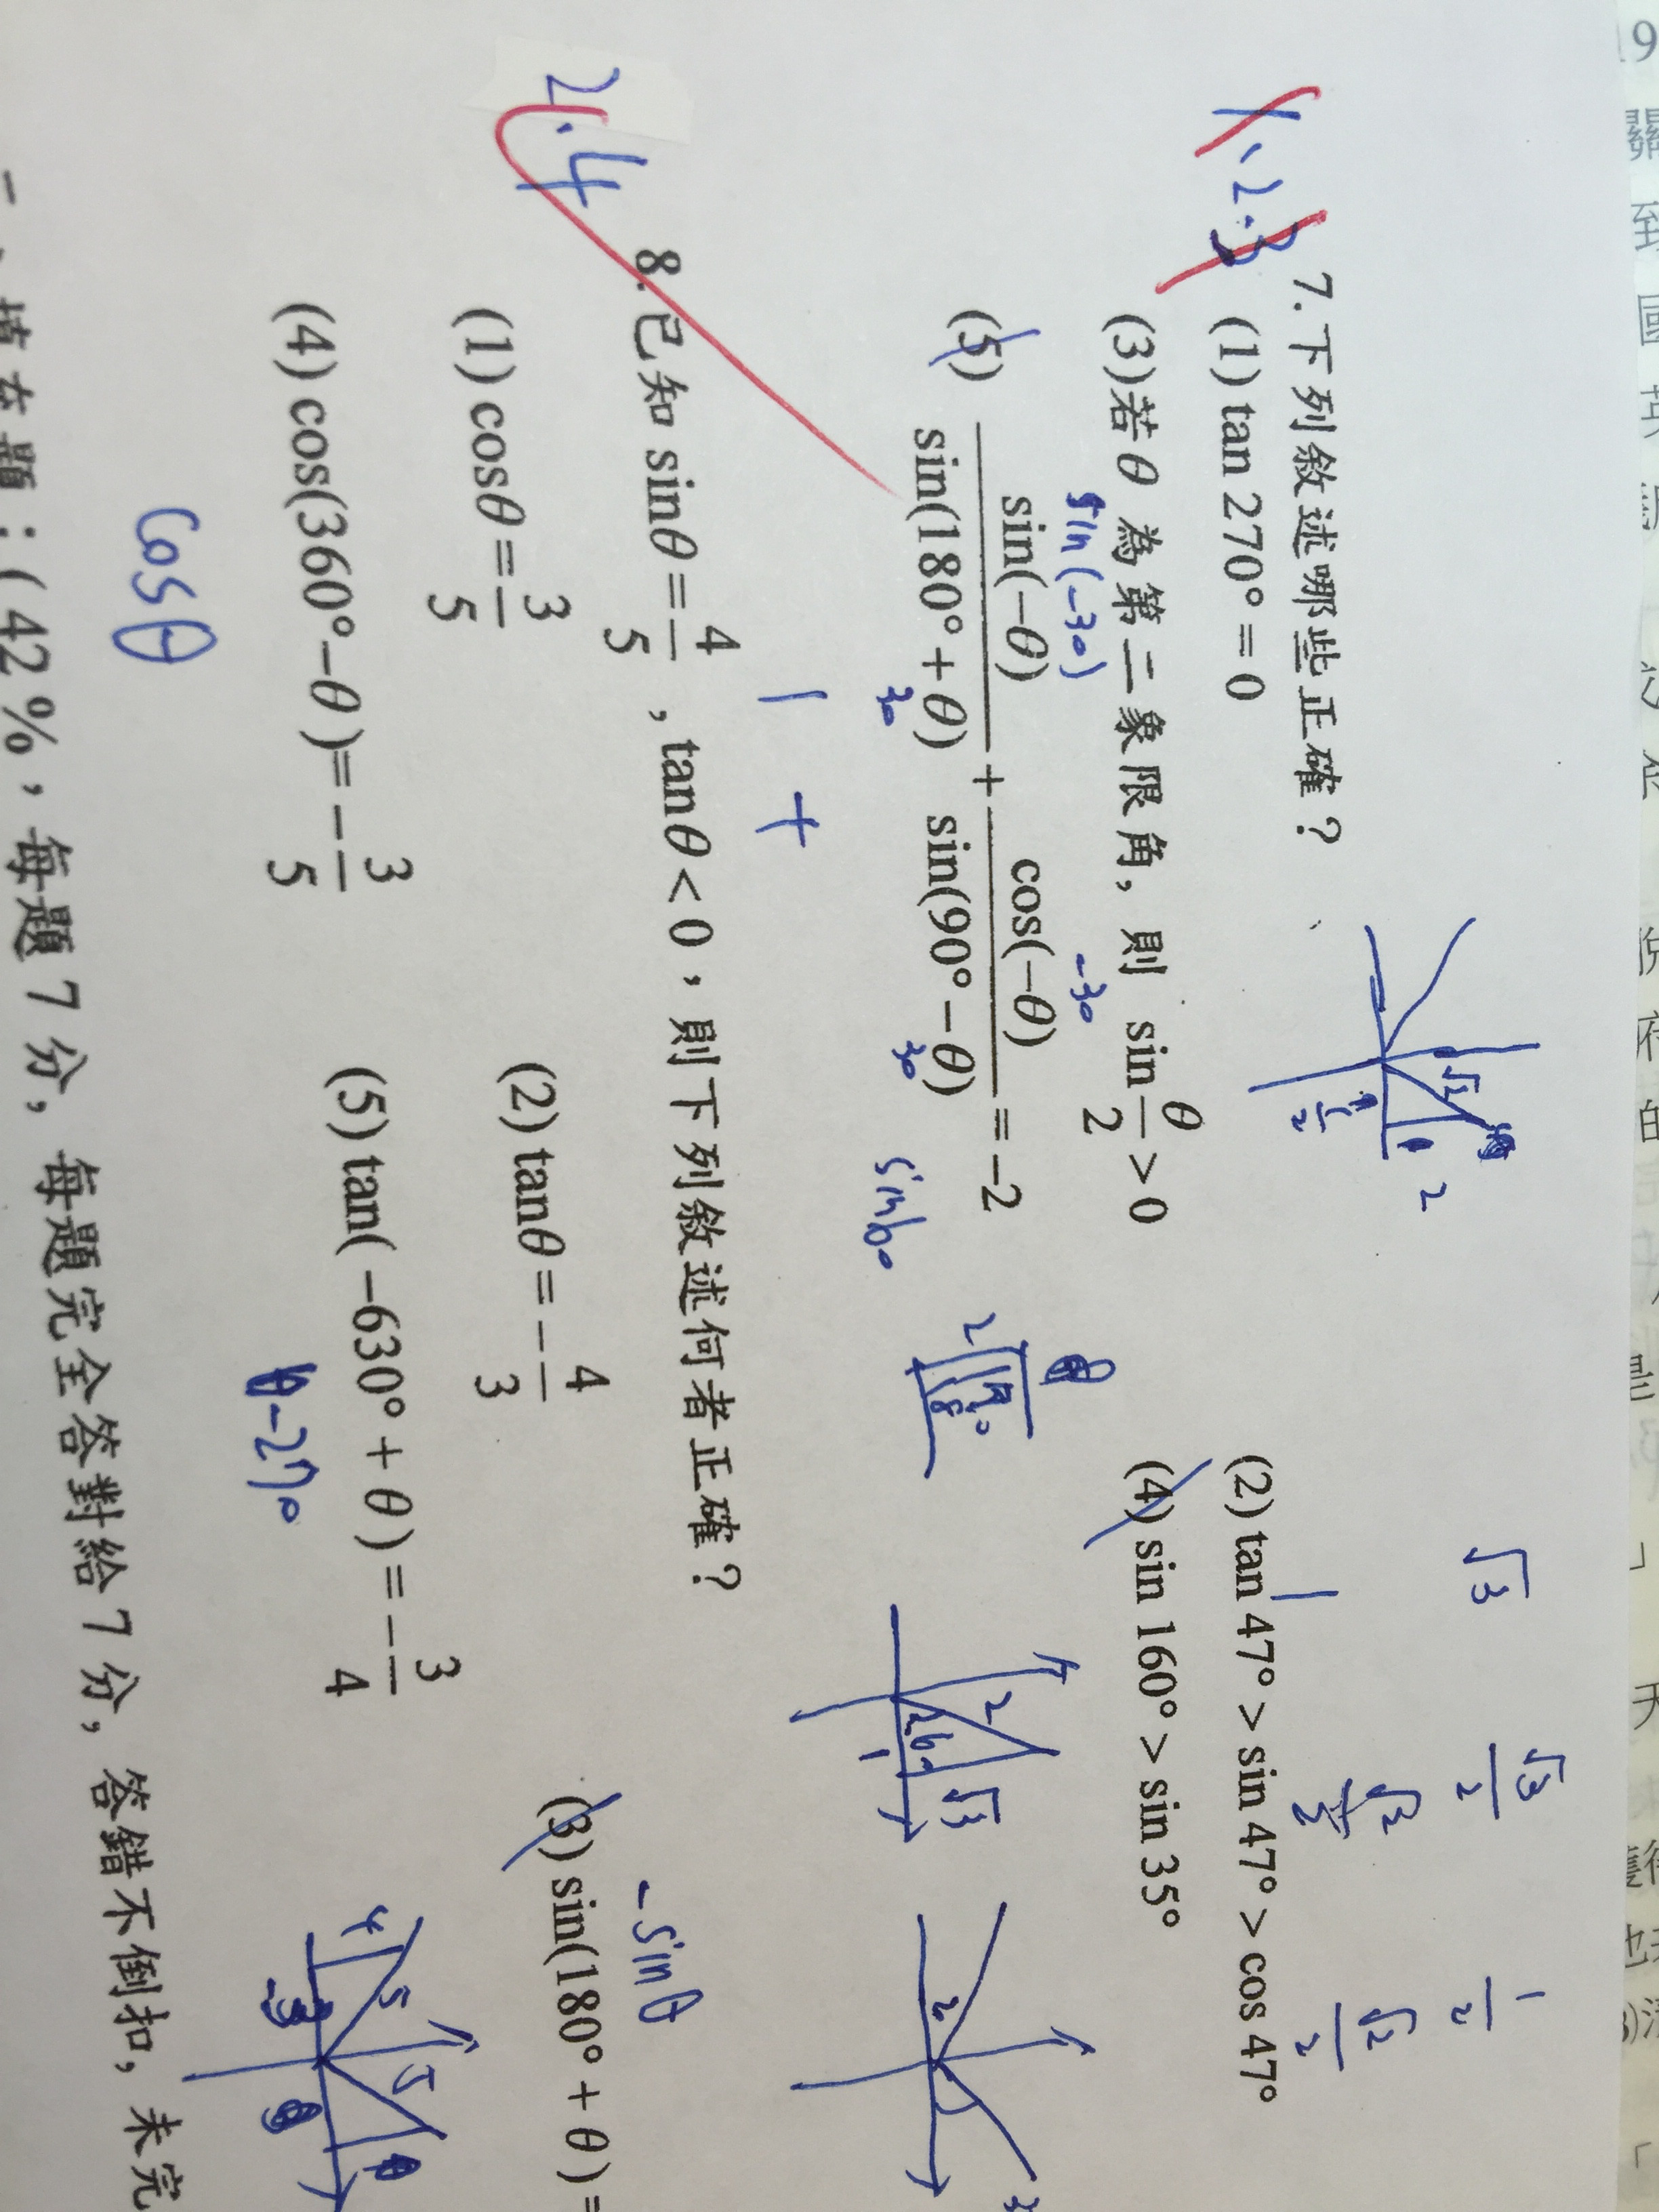 1.2.3
7.下列敘述哪些正確?
(1) tan 270° = 0
(2) tan 47° > sin 47° > cos 47°
(3)若 θ 為第二象限角, 則 sin θ/2 > 0
(4) sin 160° > sin 35°
(5) sin(−θ)/sin(180° + θ) + cos(−θ)/sin(90° − θ) = −2
sin(-30)
-30
30
30
sin60
1 +
√3
√3/2
1/2
√2/2
√2/2
2
√3
1
2
2.4
8.已知 sinθ = 4/5 , tanθ < 0 , 則下列敘述何者正確?
(1) cosθ = 3/5
(2) tanθ = − 4/3
(3) sin(180° + θ) =
-sinθ
(4) cos(360° − θ) = − 3/5
(5) tan( −630° + θ ) = − 3/4
cosθ
-270
4
5
5
填充題:(42 %, 每題 7 分, 每題完全答對給 7 分, 答錯不倒扣, 未完